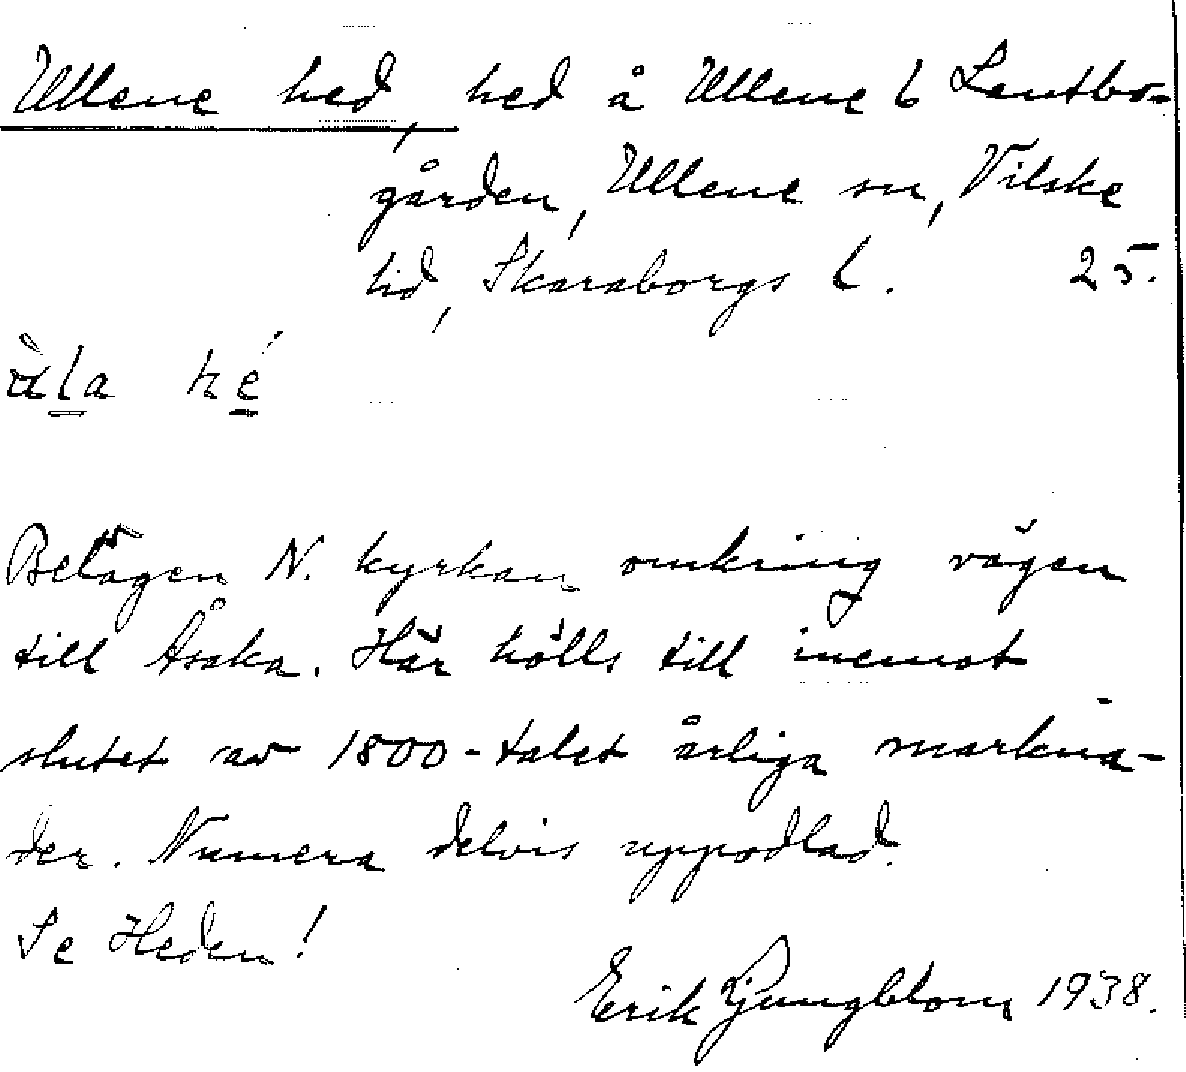 Ullene hed, hed å Ullene 6 Lentbo-
gården, Ullene sn, Vilske
hd, Skaraborgs l. 25.
àla hé
Belägen N. kyrkan omkring vägen
till Åsaka. Här hölls till inemot
slutet av 1800-talet årliga markna-
der. Numera delvis uppodlad.
Se Heden!
Erik Ljungblom 1938.